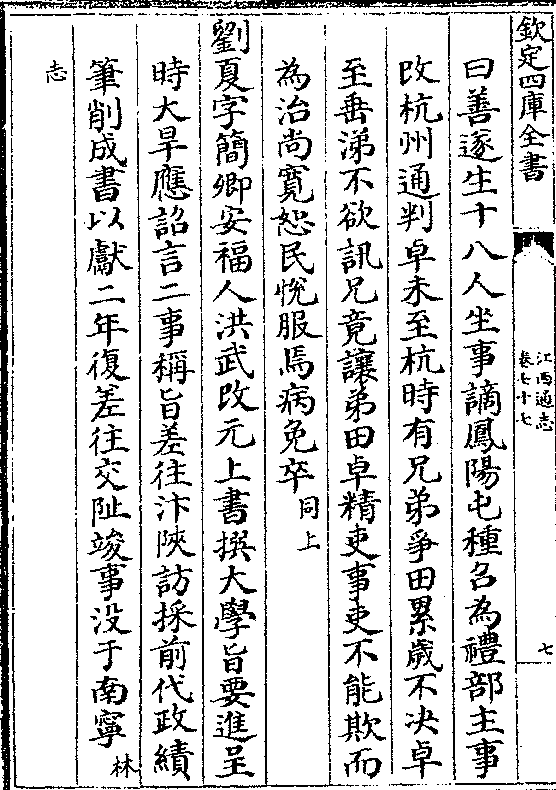 欽定四庫全書
江西通志
卷七十七
七
曰善遂生十八人坐事謫鳳陽屯種召為禮部主事
改杭州通判卓未至杭時有兄弟爭田累歲不决卓
至垂涕不欲訊兄竟讓弟田卓精吏事吏不能欺而
為治尚寛恕民悅服焉病免卒同上
劉夏字簡卿安福人洪武改元上書撰大學旨要進呈
時大旱應詔言二事稱旨差往汴陜訪採前代政績
筆削成書以獻二年復差往交阯竣事没于南寧林
志